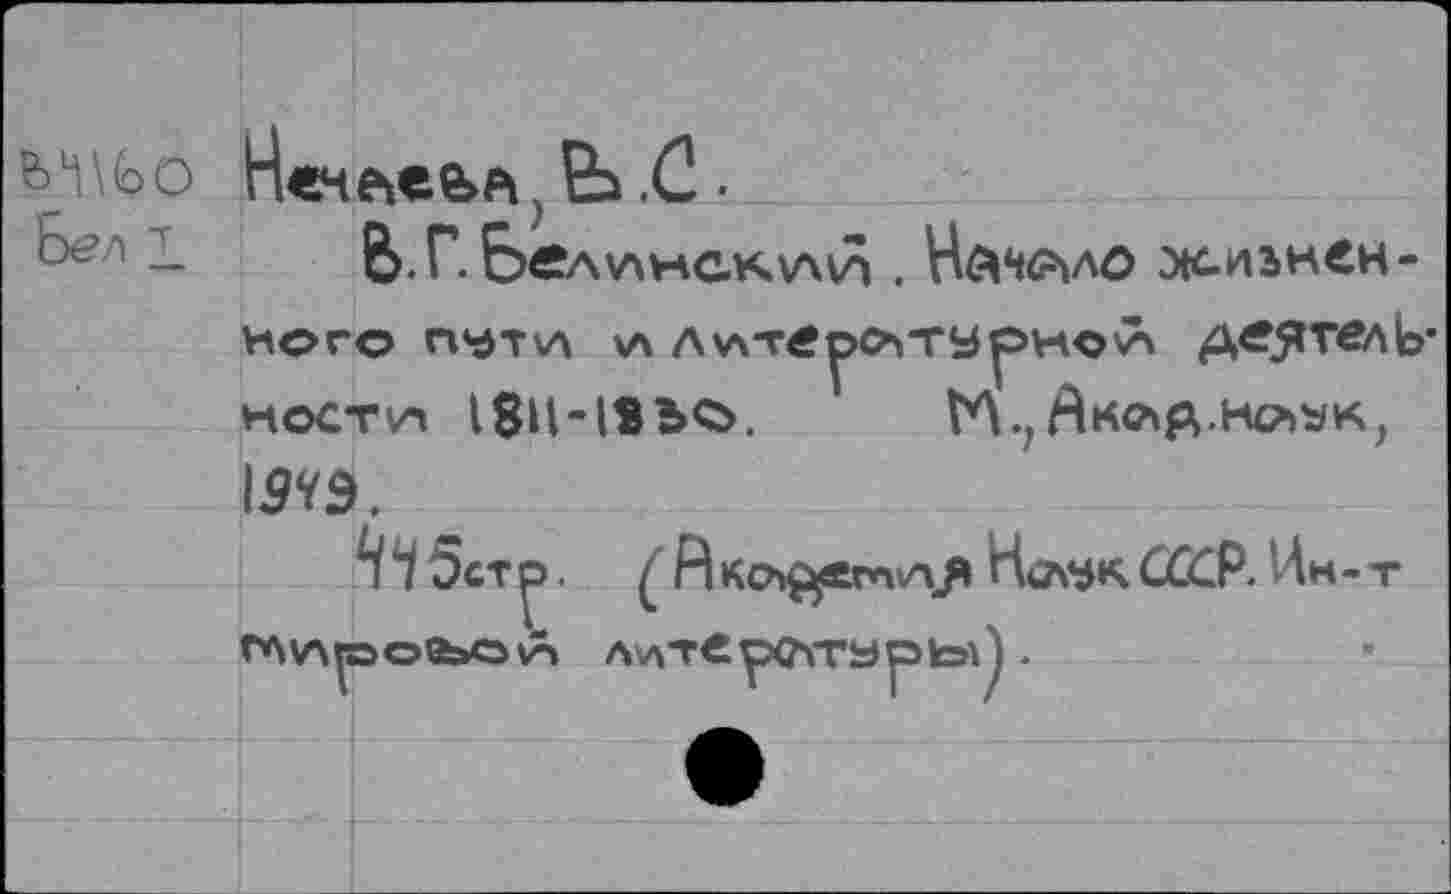 Нечаева, В.С.
Бел I
В.Г. Белинский. Начало жизнен-
ного пути и литературной деятель-
ности 1811-1830. М., Акад.наук,
1949.
445стр. (Академия Наук СССР. Ин-т
мировой литературы).